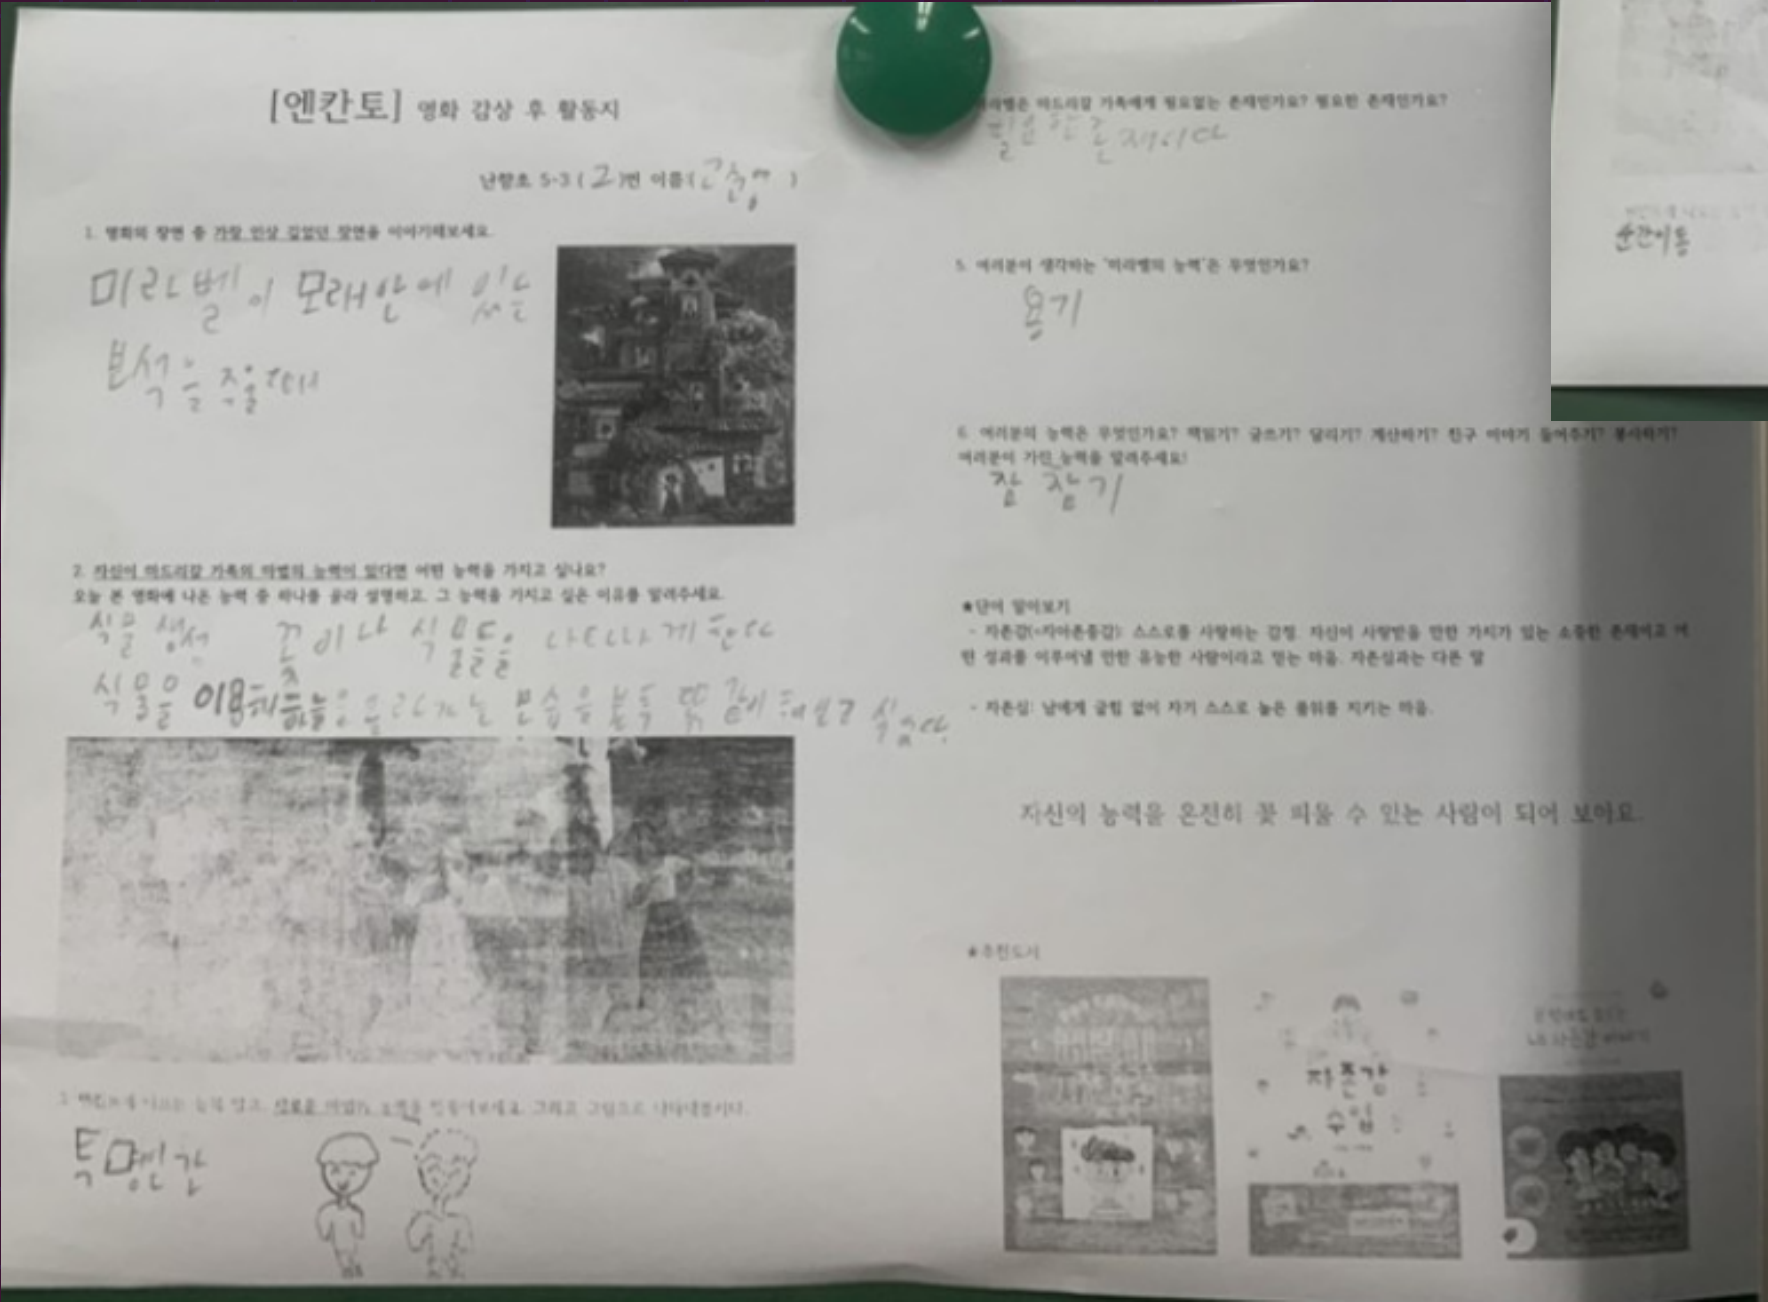 [엔칸토] 영화 감상 후 활동지
난향초 5-3 ( 2 )번 이름(
1. 영화의 장면 중 가장 인상 깊었던 장면을 이야기해보세요.
미라벨이 모래안에 있는
보석을 주울때
2. 자신이 마드리갈 가족의 마법의 능력이 있다면 어떤 능력을 가지고 싶나요?
오늘 본 영화에 나온 능력 중 하나를 골라 설명하고, 그 능력을 가지고 싶은 이유를 알려주세요.
식물 생성 꽃이나 식물들을 나타나게 한다
식물을 이용해 하늘을 올라가는 모습을 본 싶다.
능력 말고, 새로운 마법의 능력을 만들어보세요. 그리고 그림으로 나타내봅시다.
투명인간
마드리갈 가족에게 필요없는 존재인가요? 필요한 존재인가요?
필요한 존재이다
5. 여러분이 생각하는 '미라벨의 능력'은 무엇인가요?
용기
6. 여러분의 능력은 무엇인가요? 책읽기? 글쓰기? 달리기? 계산하기? 친구 이야기 들어주기? 봉사하기?
여러분이 가진 능력을 알려주세요!
잘 참기
★단어 알아보기
- 자존감(=자아존중감): 스스로를 사랑하는 감정. 자신이 사랑받을 만한 가치가 있는 소중한 존재이고 어
떤 성과를 이루어낼 만한 유능한 사람이라고 믿는 마음. 자존심과는 다른 말
- 자존심: 남에게 굽힘 없이 자기 스스로 높은 품위를 지키는 마음.
자신의 능력을 온전히 꽃 피울 수 있는 사람이 되어 보아요.
★추천도서
자존감
수업
순간이동